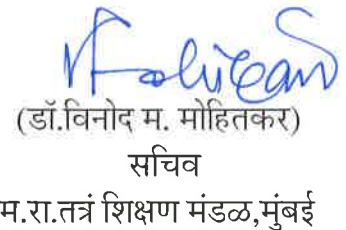 (डॉ.विनोद म. मोहितकर)
सचिव
म.रा.तत्रं शिक्षण मंडळ,मुंबई